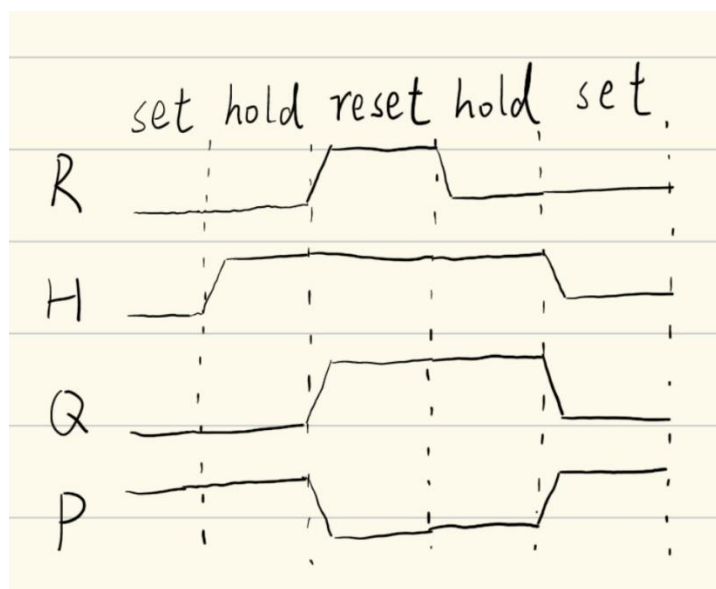 set hold reset hold set
R
H
Q
P